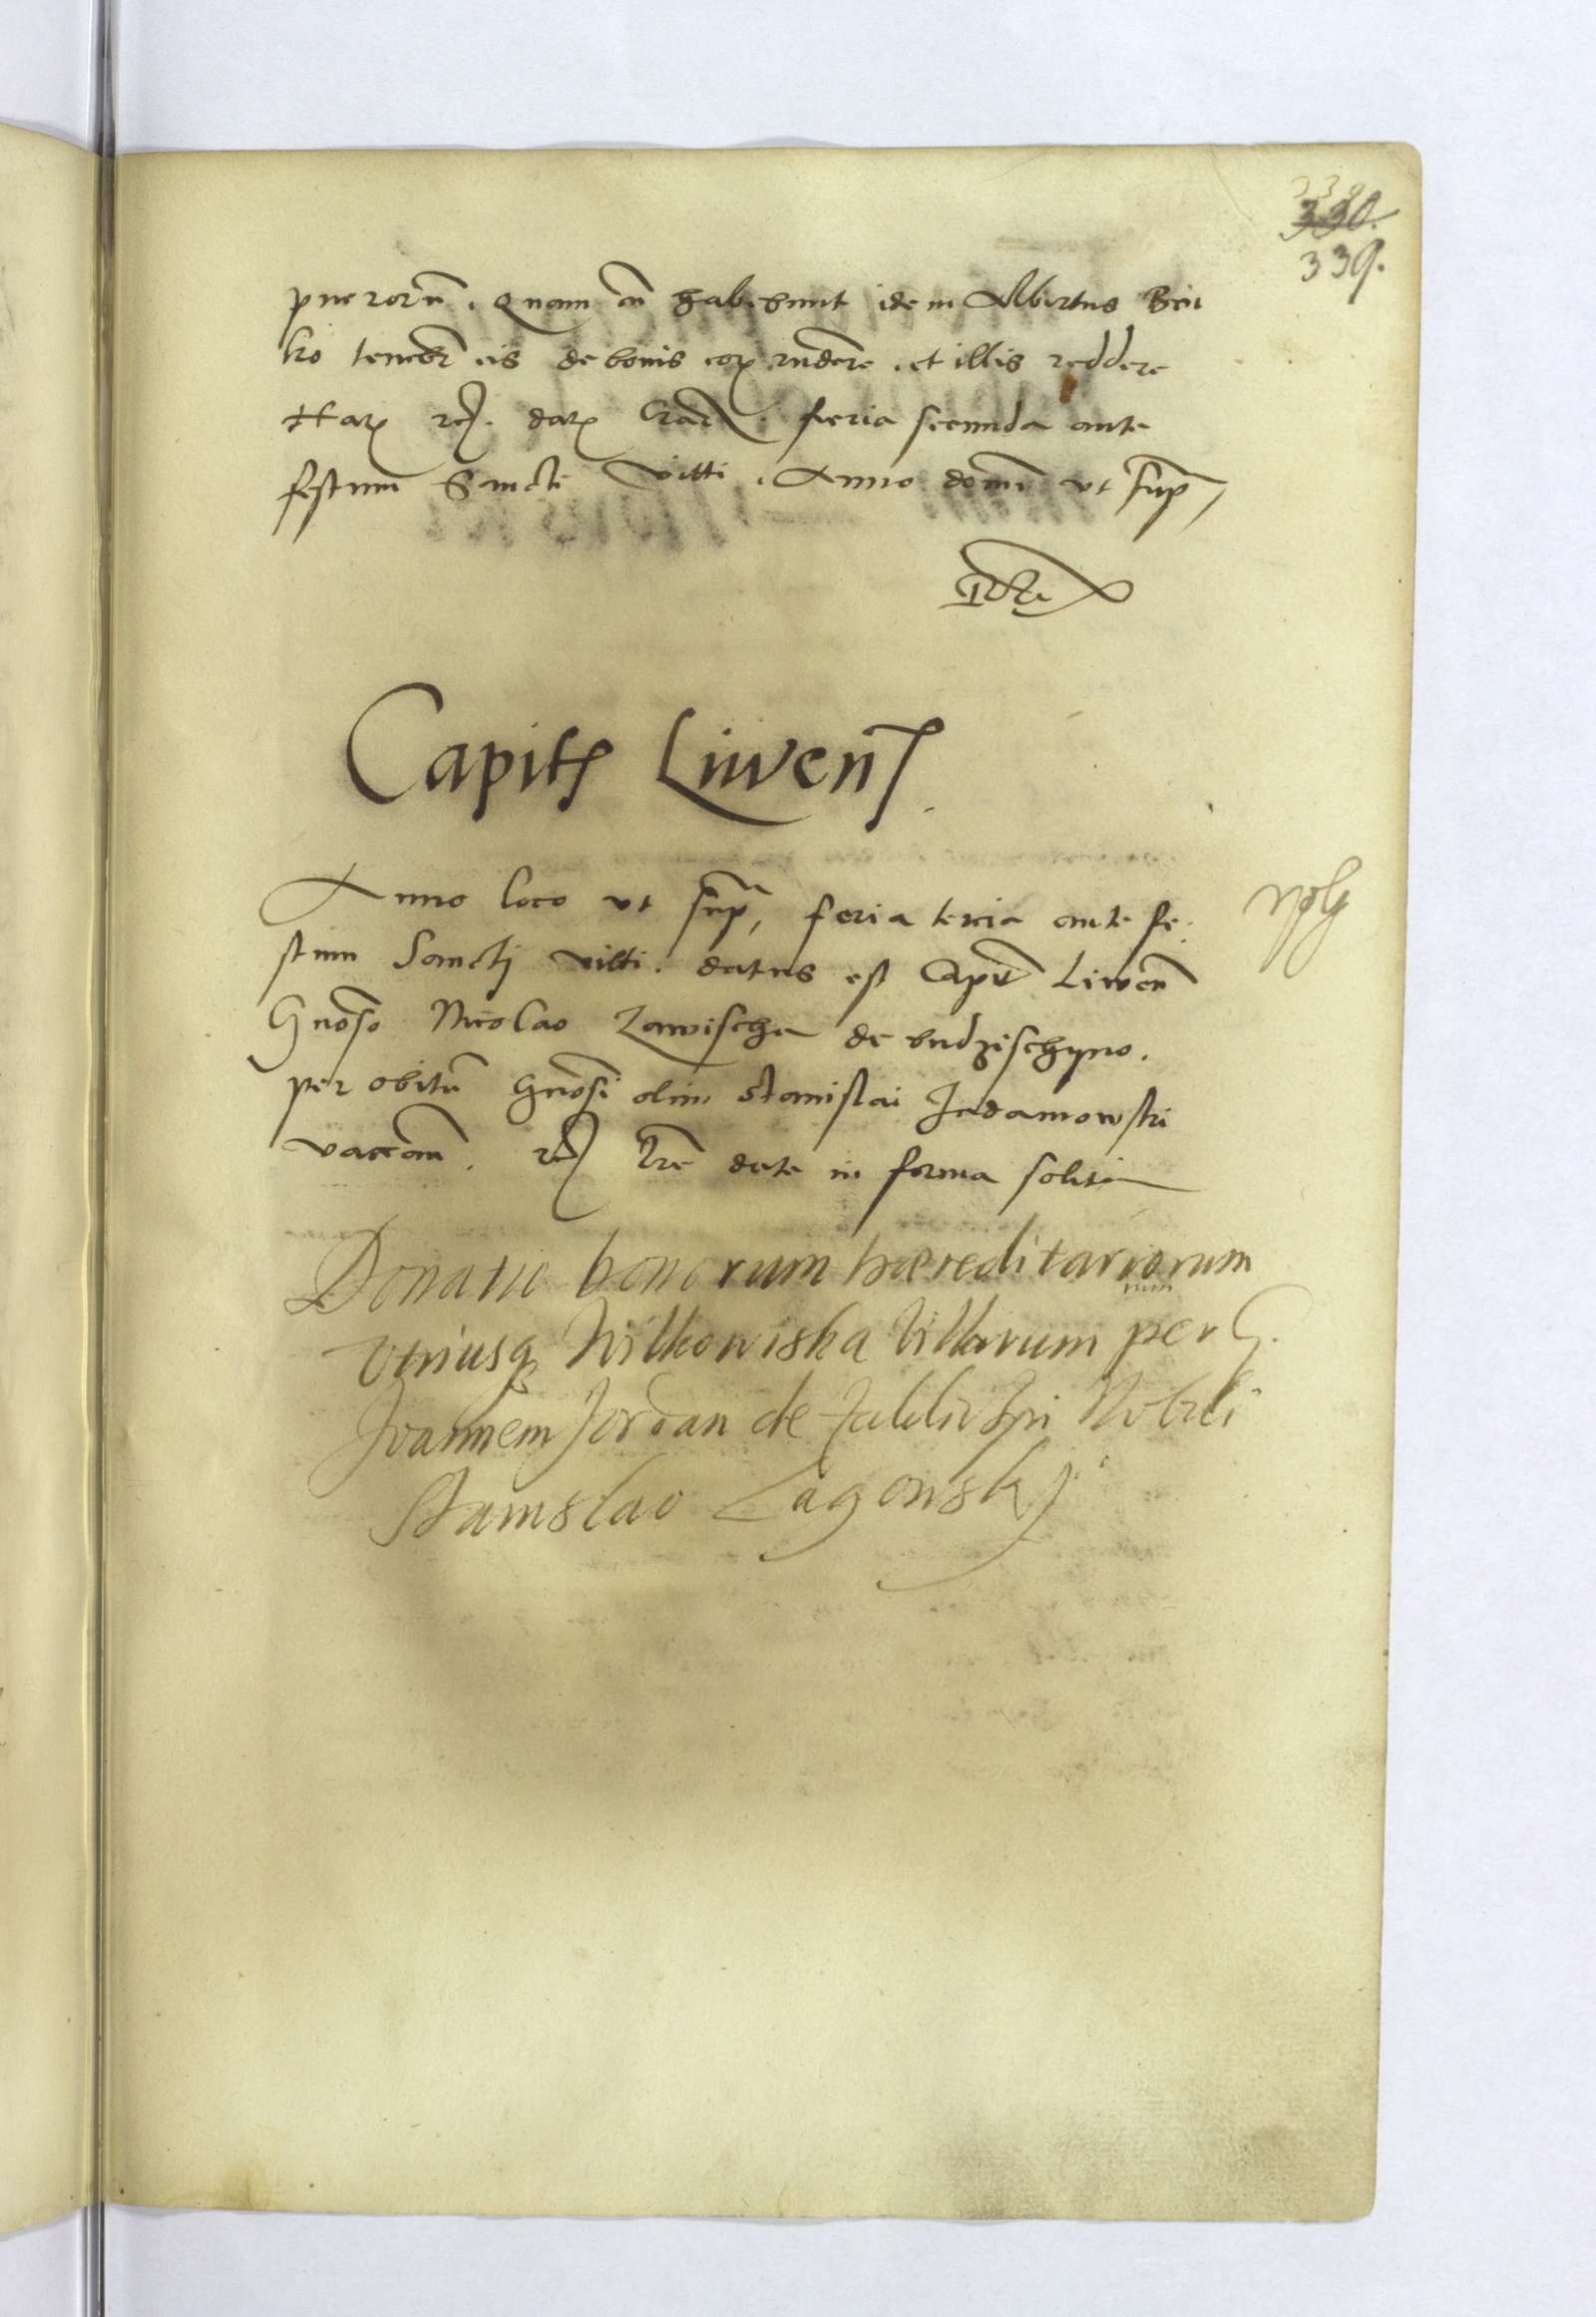 339
330.
339.
puerorũ. Quam cũ habebunt idem Albertus Bei
ko teneb̃r eis de bonis eoꝝ rñdere. et illis reddere
Harꝝ rc̃. datꝝ Crac̃. feria secunda ante
festum Sancti Vitti. Anno domĩ vt sup̃
Capitꝭ Liwenꝭ
Anno loco vt sup̃, feria tercia ante fe:
stum Sanctj Vitti. datus est Capit̃ Liwen̄
Gnõso Nicolao Zawischa de budzischyno.
per obitũ Gnõsi olim Stanislai Jadamowski
vacan̄. rc̃ lrẽ date in forma solita
Donatio bonorum haereditariorum
vtriusqꝫ Wilkowiska villarum per G.
Joannem Jordan de Zakliczin Nobili
Stanislao Lagowskj